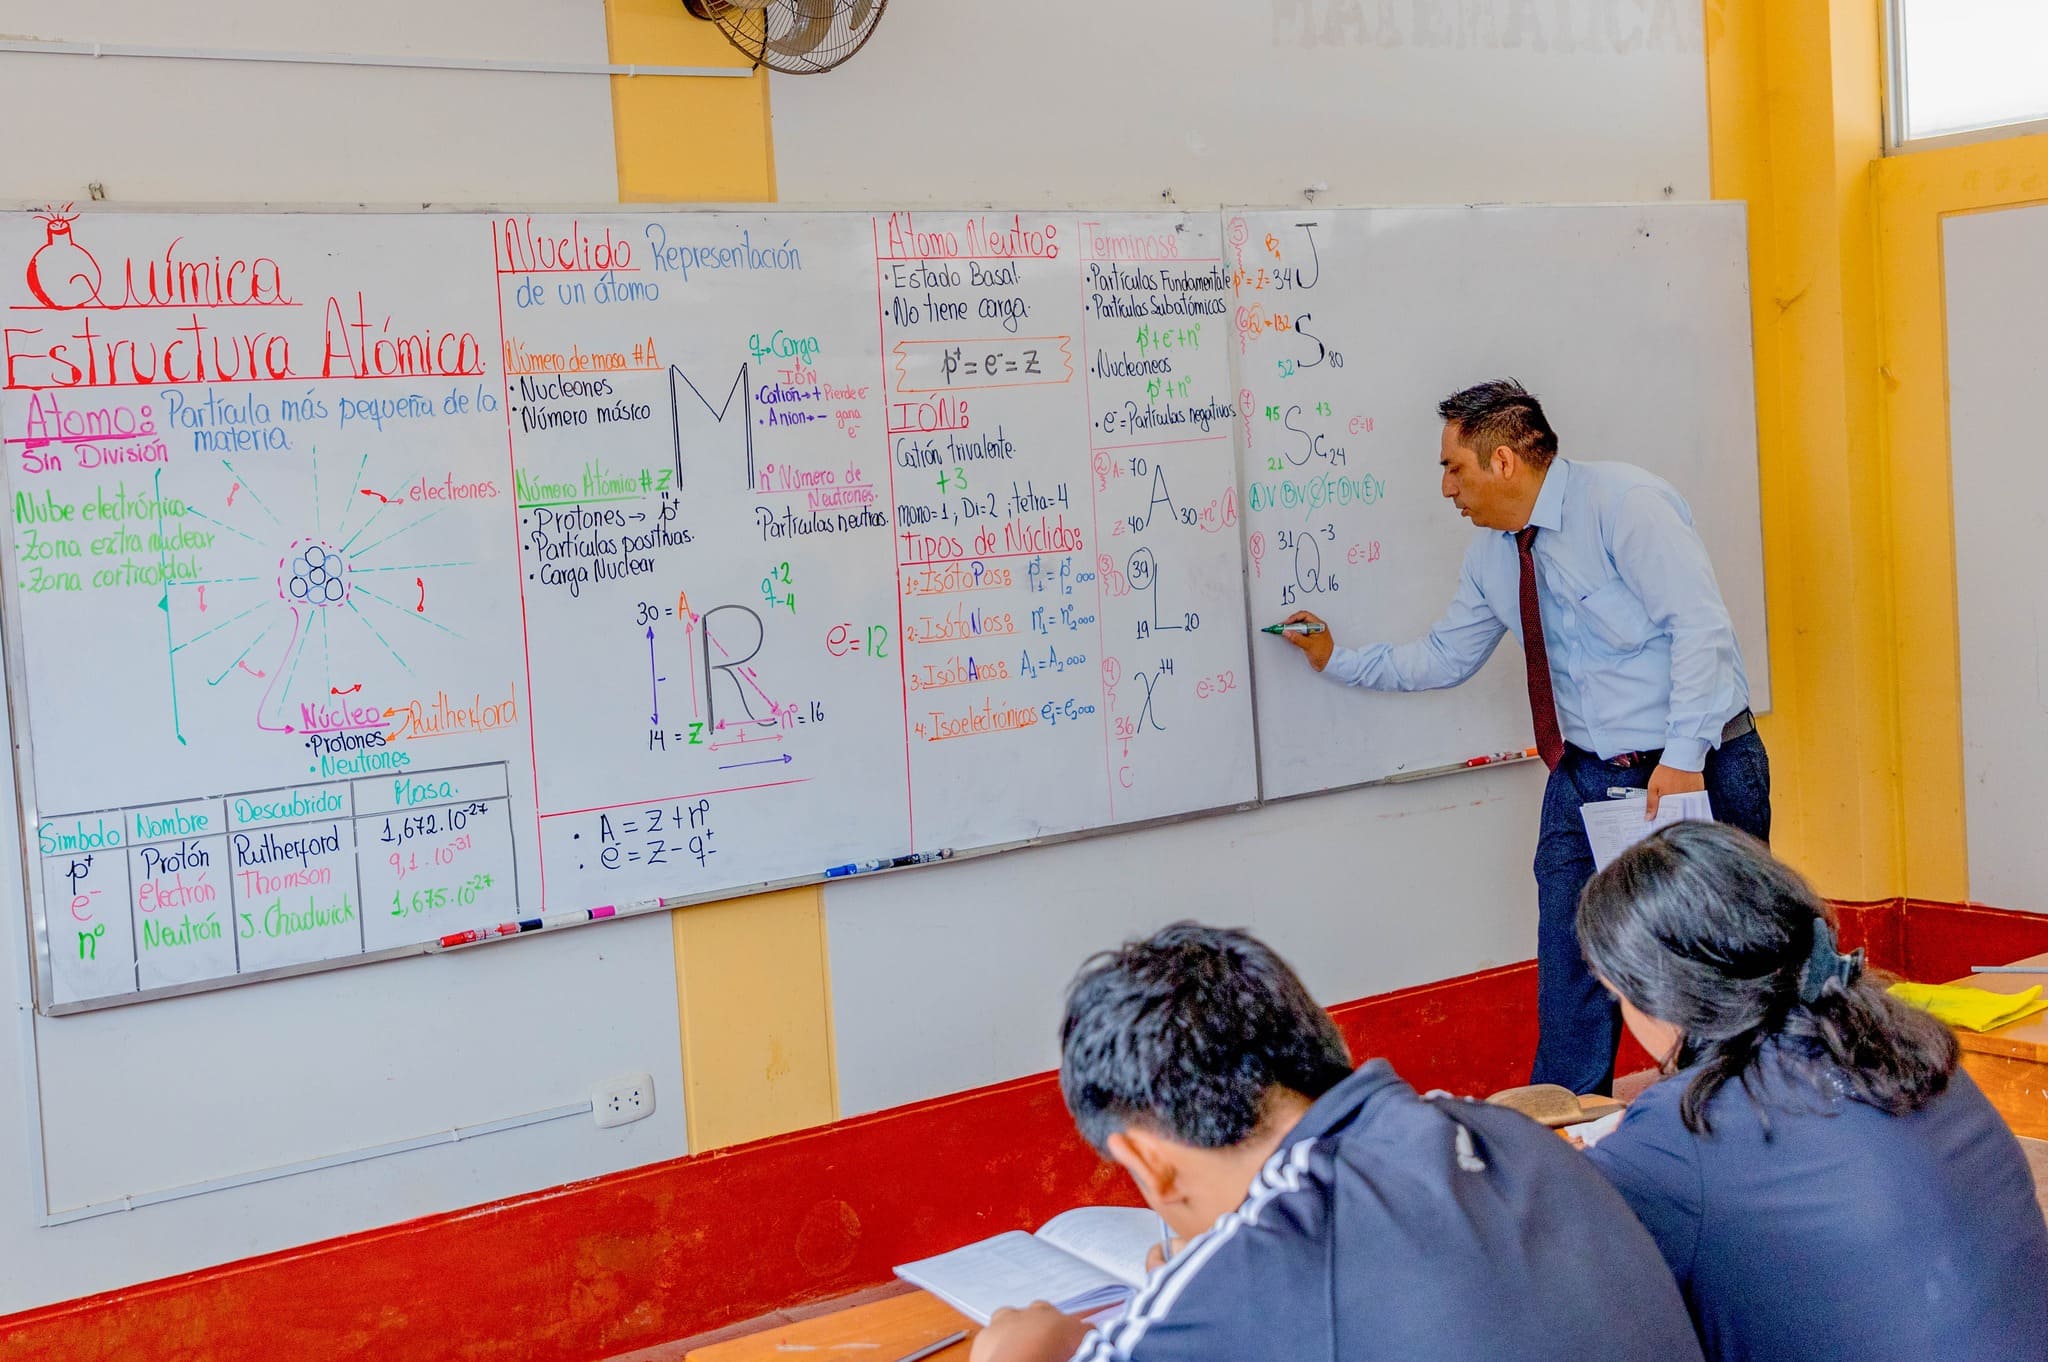 MATEMÁTICAS
Química
Estructura Atómica.
Átomo: Partícula más pequeña de la
materia.
Sin División
Nube electrónica
·Zona extra nuclear
·Zona corticoidal.
electrones.
Núcleo
Rutherford
·Protones
·Neutrones
Simbolo Nombre Descubridor Masa.
p+ Protón Rutherford 1,672.10-27
e- Electrón Thomson 9,1.10-31
n° Neutrón J. Chadwick 1,675.10-27
Nuclido Representación
de un átomo
Número de masa #A
·Nucleones
·Número másico
M
q→Carga
IÓN
·Catión→+ Pierde e-
·Anion→- gana
e-
Número Atómico #Z
·Protones→ p+
·Partículas positivas.
·Carga Nuclear
n° Número de
Neutrones.
·Partículas neutras.
30 = A
R
q+2
-4
e-=12
14 = Z
+
n°=16
· A = Z + n°
· e- = Z - q±
Átomo Neutro:
·Estado Basal.
·No tiene carga.
p+ = e- = Z
IÓN:
Catión trivalente.
+3
mono=1; Di=2; tetra=4
Tipos de Núclido:
1: IsótoPos: p+1 = p+2 ooo
2: IsótoNos: n°1 = n°2 ooo
3: IsóbAros: A1 = A2 ooo
4: Isoelectrónicos e-1 = e-2 ooo
Terminos:
·Partículas Fundamentale
·Partículas Subatómicas
p+ + e- + n°
·Nucleoneos
p+ + n°
·e- = Partículas negativas
2 A= 70
A
Z= 40 30=n° A
3 D 39
L
19 20
4 X+4
e-=32
36
C
5 J
B
p+ = Z = 34
6 132
S
52 80
7 45 +3
Sc
e-=18
21 24
AV BV CF DV EV
8 31 -3
Q
e-=18
15 16